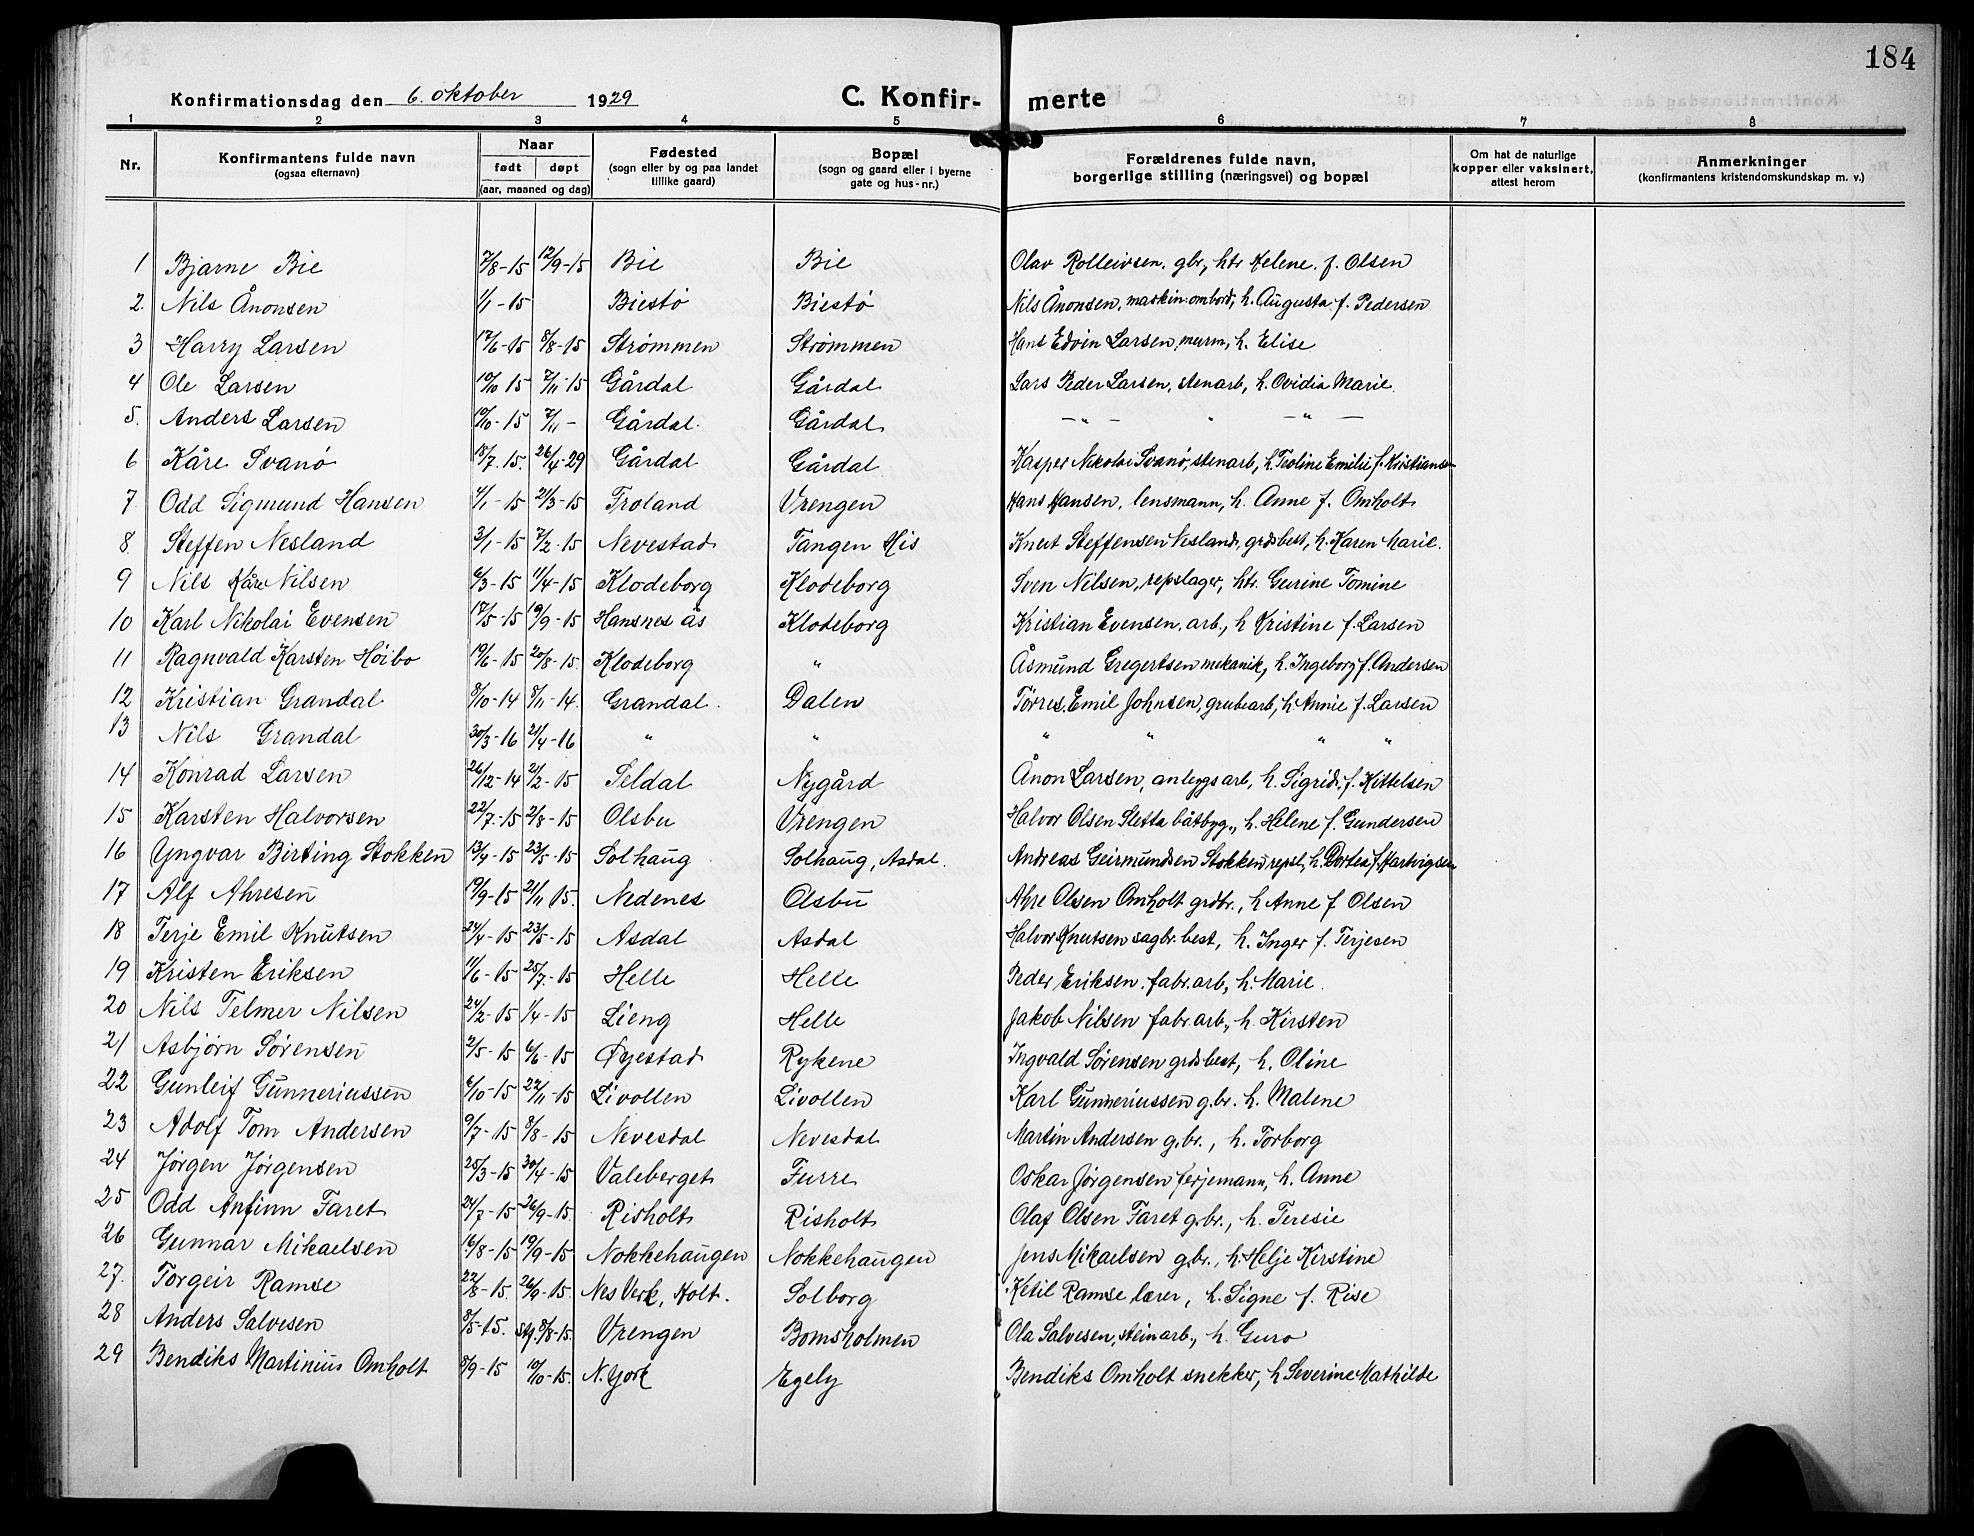 184
Konfirmationsdag den 6. oktober 1929 C. Konfir- merte
1 2 3 4 5 6 7 8
Nr. Konfirmantens fulde navn (ogsaa efternavn) Naar født døpt (aar, maaned og dag) Fødested (sogn eller by og paa landet tillike gaard) Bopæl (sogn og gaard eller i byerne gate og hus-nr.) Forældrenes fulde navn, borgerlige stilling (næringsvei) og bopæl Om hat de naturlige kopper eller vaksinert, attest herom Anmerkninger (konfirmantens kristendomskundskap m. v.)
1 Bjarne Bie 7/8-15 12/9-15 Bie Bie Olav Rolleivsen. gbr, htr Helene. f. Olsen
2. Nils Ånonsen 1/1-15 Biestø Biestø Nils Ånonsen, maskin. ombord, h. Augusta f. Pedersen
3 Harry Larsen 17/6-15 8/8-15 Strømmen Strømmen Hans Edvin Larsen, murm, h. Elise
4 Ole Larsen 10/10 15 7/11-15 Gårdal Gårdal Lars Peder Larsen, stenarb, h. Ovidia Marie.
5. Anders Larsen 10/10-15 7/11- Gårdal. Gårdal — " — " — " —
6 Kåre Svanø 18/7.15. 26/4-29 Gårdal Gårdal Kasper Nikolai Svanø, stenarb, h. Teoline Emilie f. Kristiansen
7. Odd Sigmund Hansen 4/1-15 21/3-15 Froland Vrengen Hans Hansen, lensmann, h. Anne f. Omholt
8. Steffen Nesland 3/1-15 7/2-15 Nevestad Tangen His Knut Steffensen Nesland, grdsbest, h. Karen Marie.
9 Nils Kåre Nilsen 6/3-15 11/4-15 Klodeborg Klodeborg Sven Nilsen, repslager, htr. Gurine Tomine
10 Karl Nikolai Evensen 17/5-15 19/9-15 Hansnes ås Klodeborg Kristian Evensen. arb., h Kristine f. Larsen
11 Ragnvald Karsten Høibo 19/6-15 20/8-15. Klodeborg " Åsmund Gregertsen mekanik, h. Ingeborg f. Andersen
12 Kristian Grandal 8/10-14 8/11-14. Grandal. Dalen Tørres. Emil Johnsen, grubearb, h. Annie f. Larsen
13 Nils Grandal 30/3-16 21/4-16 " " " " " "
14 Konrad Larsen 26/12-14 21/2-15 Seldal Nygård Ånon Larsen, anlegsarb, h. Sigrid. f. Kittelsen
15 Karsten Halvorsen 22/7-15 2/8-15 Olsbu Vrengen Halvor Olsen Sletta båtbyg., h. Helene f. Gundersen
16 Yngvar Birting Stokken 13/4-15 23/5-15 Solhaug Solhaug, Asdal. Andreas Geirmundsen Stokken repsl, h. Dortea f. Hartvigsen
17 Alf Ahresen 19/9-15 21/11 15. Nedenes Olsbu Ahre Olsen Omholt grdbr., h Anne f Olsen
18 Terje Emil Knutsen 24/4-15 23/5-15 Asdal Asdal Halvor Knutsen sagbr. best, h. Inger f. Terjesen
19 Kristen Eriksen 11/6-15 25/7-15 Helle Helle Peder Eriksen. fabr. arb, h. Marie.
20 Nils Telmer Nilsen 24/2-15 1/4-15 Lieng Helle Jakob Nilsen fabr. arb., h. Kirsten
21 Asbjørn Sørensen 2/5-15 6/6-15 Øyestad Rykene Ingvald Sørensen grdsbest, h. Oline
22 Gunleif Gunneriussen 6/10-15 22/11-15 Livollen Livollen Karl Gunneriussen g.br. h. Malene
23 Adolf Tom Andersen 9/7-15 8/8-15 Nevesdal Nevesdal Martin Andersen g.br., h. Torborg
24 Jørgen Jørgensen 25/3-15 30/4-15 Valeberget Furre Oskar Jørgensen ferjemann, h. Anne
25 Odd Anfinn Faret 24/7-15 26/9-15. Risholt Risholt Olaf Olsen Faret g.br., h. Teresie
26 Gunnar Mikaelsen 16/8-15 19/9-15 Nokkehaugen Nokkehaugen Jens Mikaelsen g.br., h. Helje Kirstine
27. Torgeir Ramse 22/8-15. 26/9-15. Nes Verk, Holt. Solborg Ketil Ramse lærer, h. Signe f. Rise
28 Anders Salvesen 8/5-15. 8/8-15. Vrengen Bomsholmen Ola Salvesen, steinarb., h. Guro
29 Bendiks Martinius Omholt 8/9-15 10/10-15. N. York Egely Bendiks Omholt snekker, h Severine Mathilde